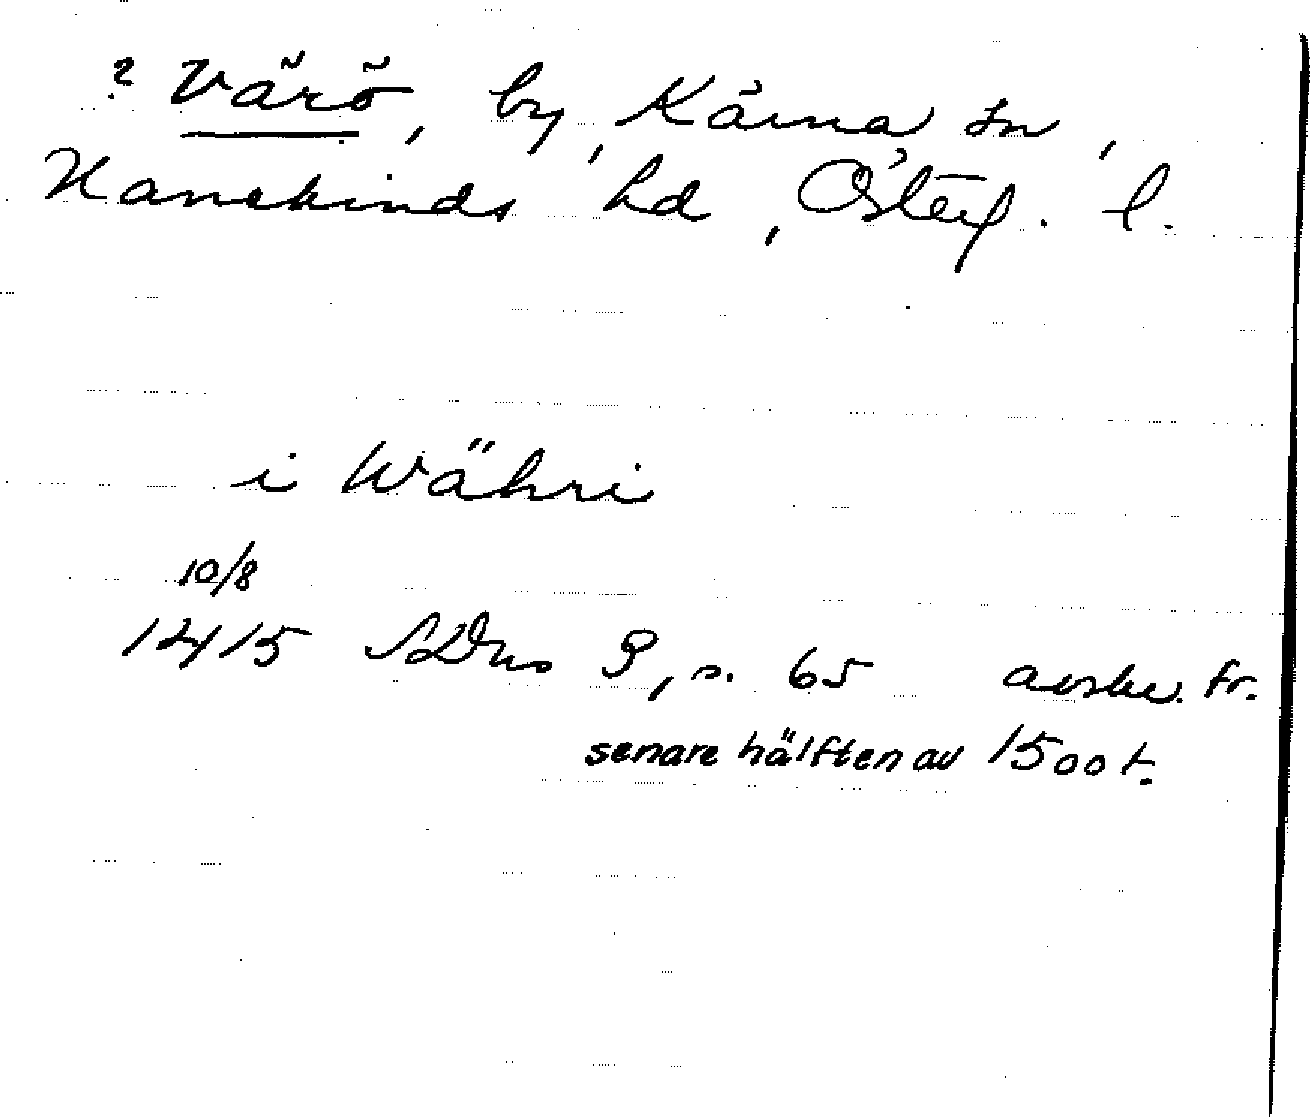 ? Värö, by, Kärna sn,
Hanekinds hd, Österg. l.
i Währi
10/8
1415 SDns 3, s. 65 avskr. fr.
senare hälften av 1500 t.